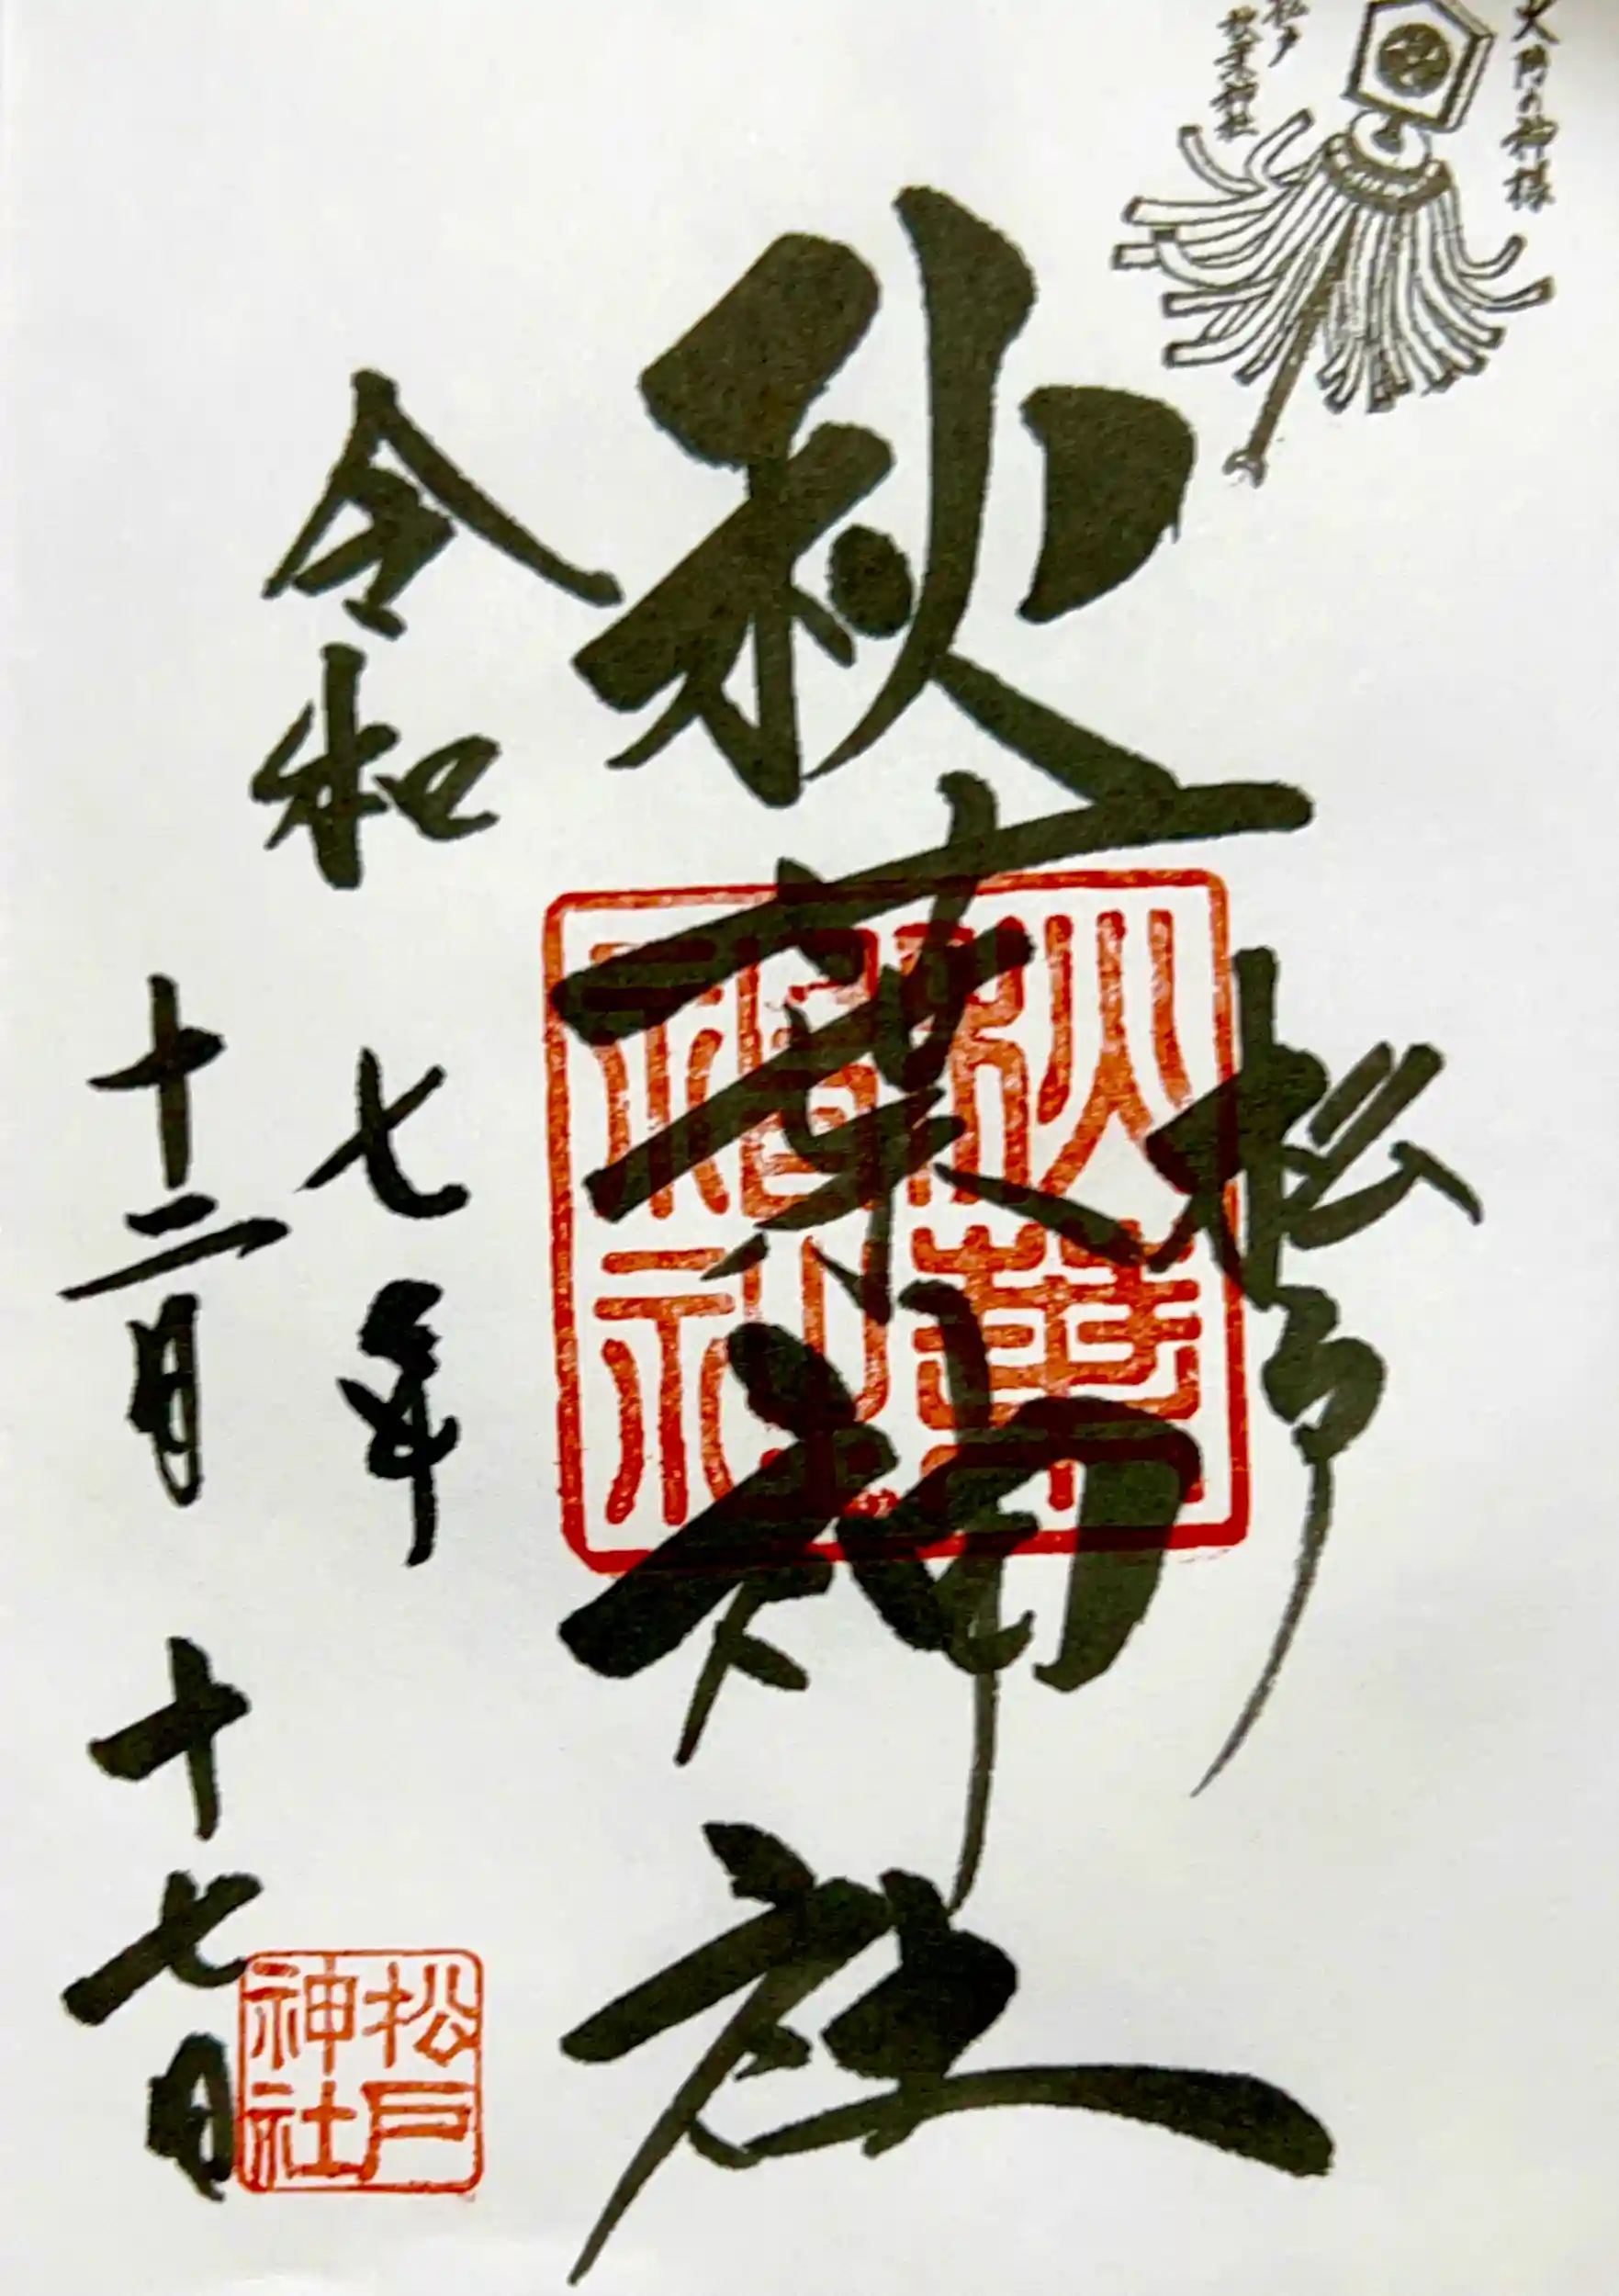 火防の神様
松戸
秋葉神社
松戸
秋葉神社
秋葉
神社
令和
七年
十二月
十七日
松戸
神社